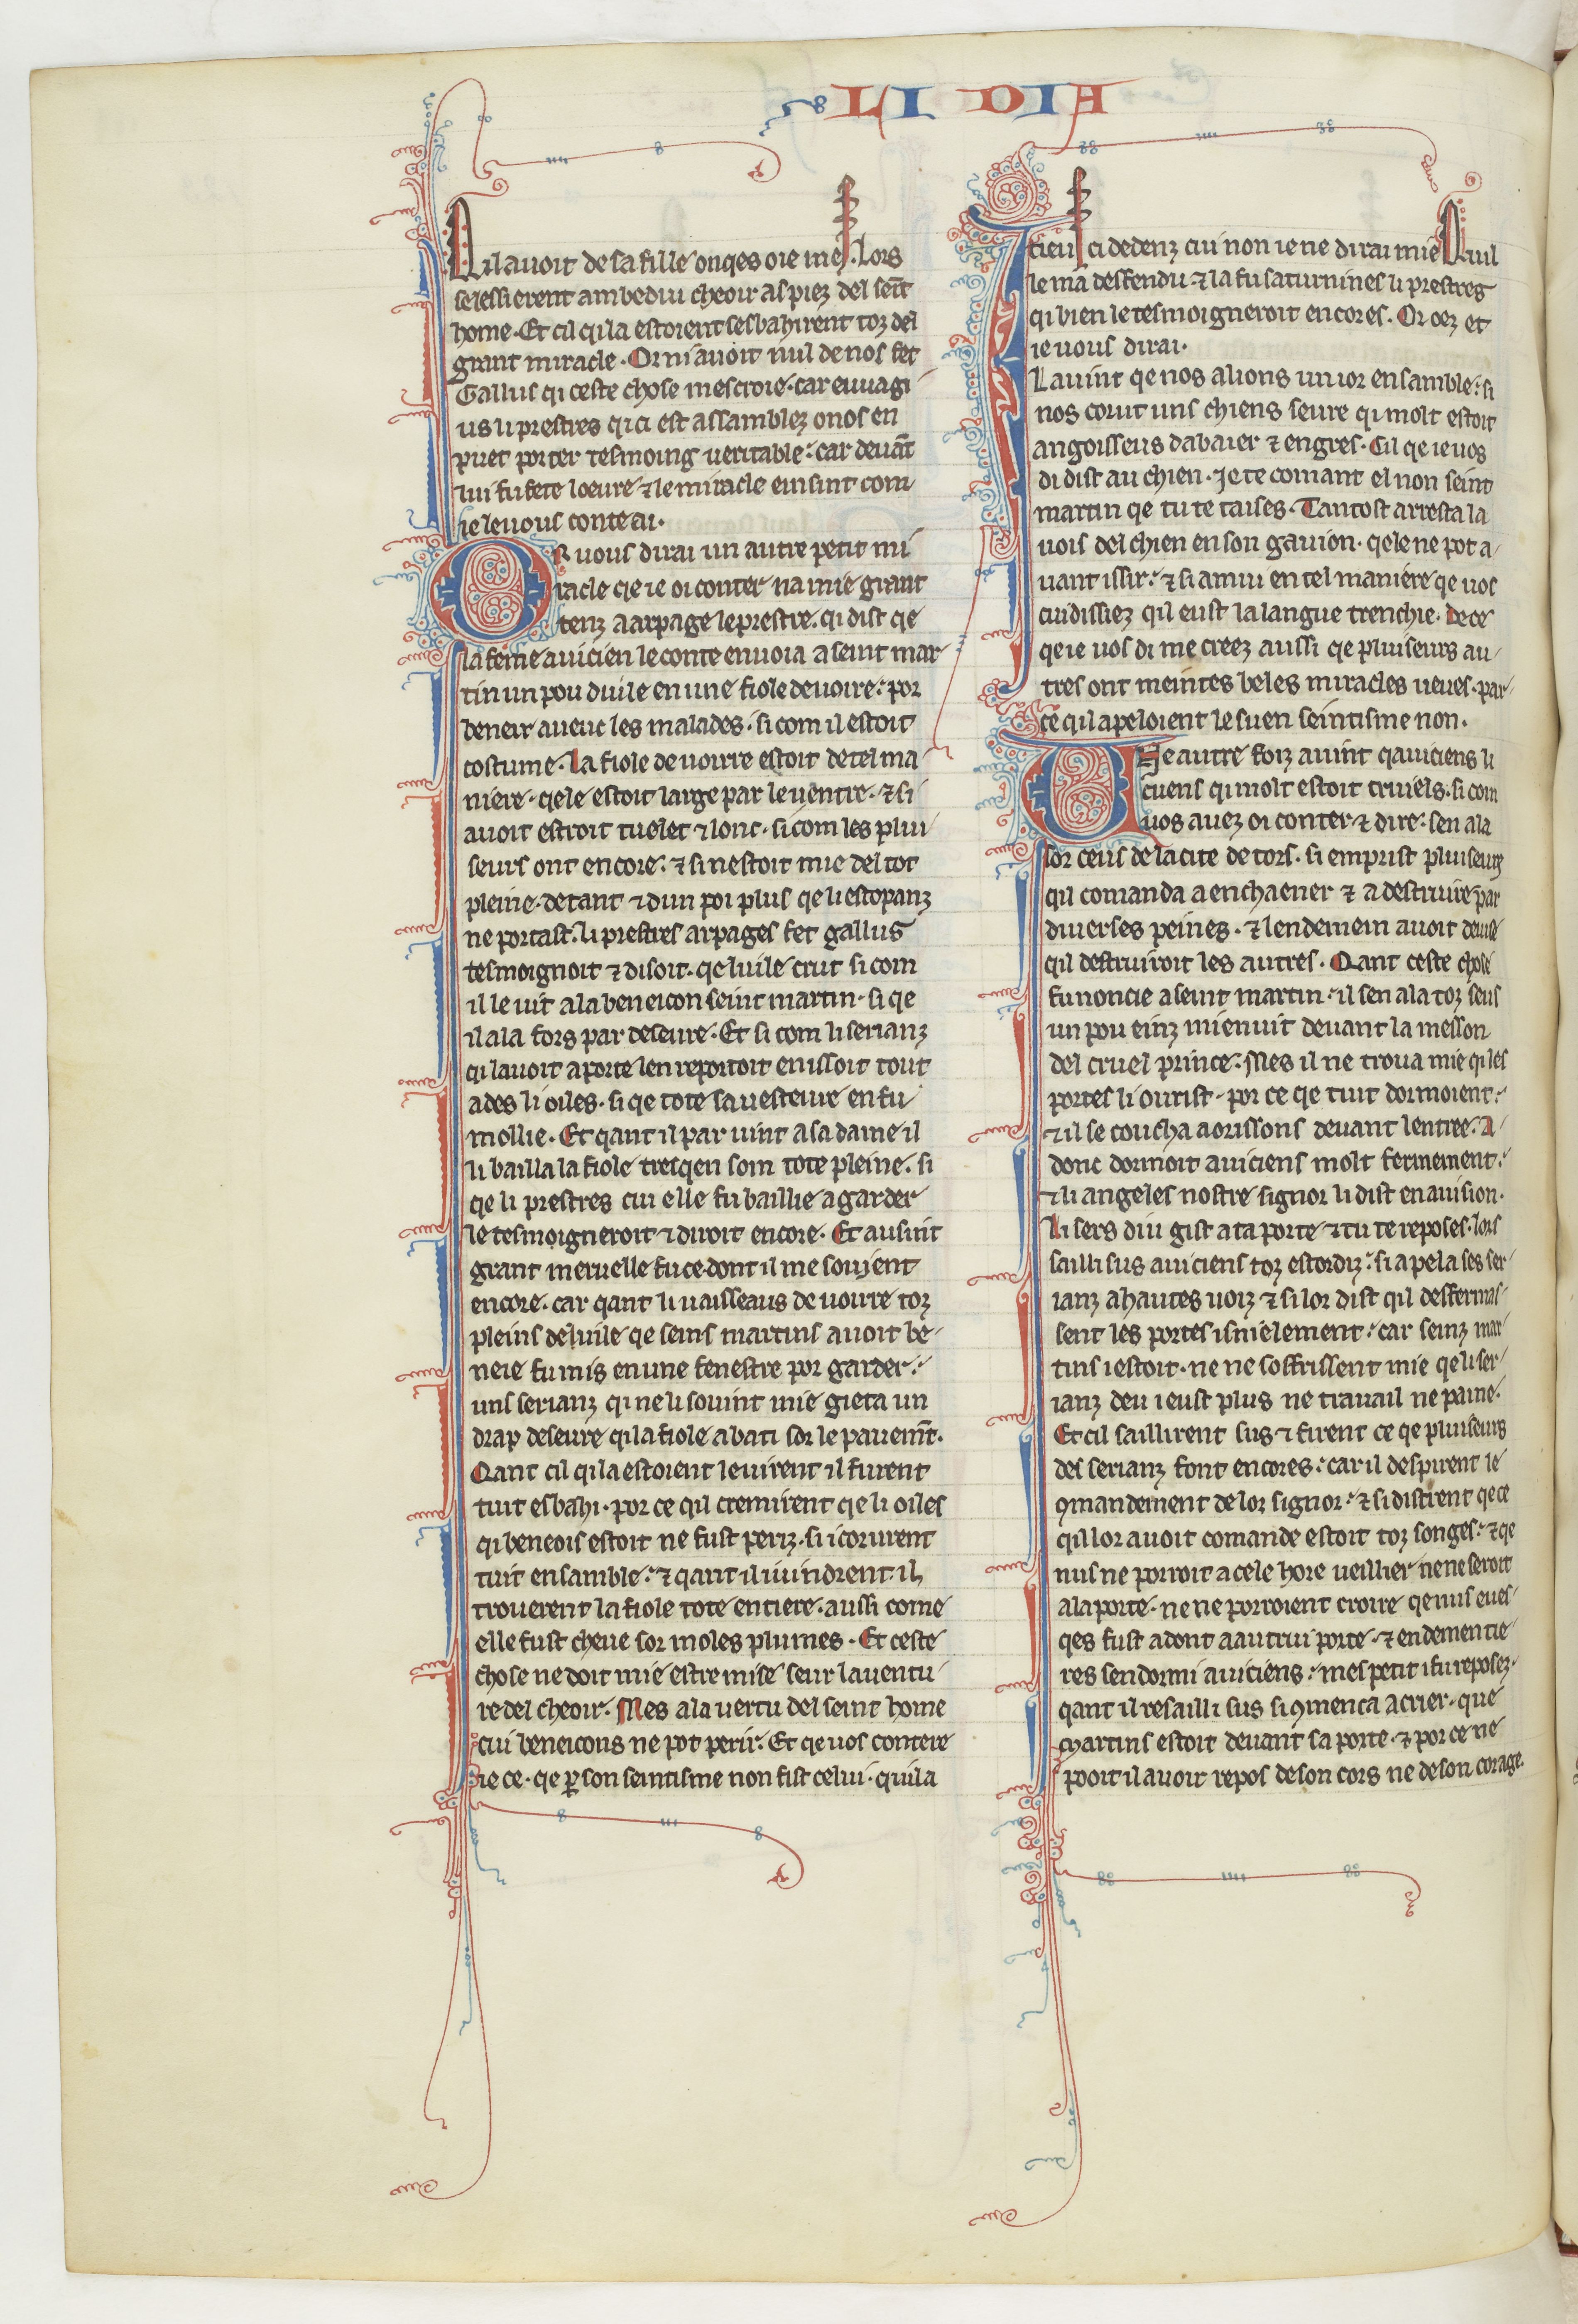 FIA LI
Qil auoit de sa fille onqes oie mes. Lors
se lessierent ambedui cheoir as piez del seīt
home. Et cil qi la estoient sesbahirent toz del
grant miracle. Or ni auoit nul de nos fet
Gallus qi ceste chose mescroie. car euuagi
us li prestres qi ci est assamblez o nos en
puet porter tesmoing ueritable. car deuāt
lui fu fete loeure ⁊ le miracle einsint com
ie le uous conte ci.
Or uous dirai un autre petit mi
racle qe ie oi conter na mie grant
tenz a arpage le prestre. qi dist qe
la feme auicien le conte enuoia a seint mar
tin un pou duile en une fiole de uoire. por
beneir aueuc les malades. si com il estoit
costume. La fiole de uoirre estoit de tel ma
niere. qele estoit large par le uentre. ⁊ si
auoit estroit tuelet ⁊ lonc. si com les plui
seurs ont encore. ⁊ si nestoit mie del tot
pleine. de tant ⁊ dun poi plus qe li estopanz
ne portast. li prestres arpages fet gallus
tesmoignoit ⁊ disoit. qe luile crut si com
il le uit a la beneicon seint martin. si qe
il ala fors par deseure. Et si com li serianz
qi lauoit aporte len reportoit en issoit tout
ades li oiles. si qe tote sa uesteure en fu
mollie. Et qant il par uint a sa dame il
li bailla la fiole tresqen som tote pleine. si
qe li prestres cui elle fu baillie a garder
le tesmoigneroit ⁊ diroit encore. Et ausint
grant meruelle fu ce. dont il me souient
encore. car qant li uaisseaus de uoirre toz
pleins deluile qe seins martins auoit be
neie fu mis en une fenestre por garder.
uns serianz qi ne li souint mie gieta un
drap deseure qi la fiole abati sor le pauemēt.
Qant cil qi la estoient le uirent il furent
tuit esbahi. por ce qil cremirent qe li oiles
qi beneois estoit ne fust periz. si i corurent
tuit ensamble. ⁊ qant il i uindrent. il
trouerent la fiole tote entiere. aussi come
elle fust cheue sor moles plumes. Et ceste
chose ne doit mie estre mise seur lauentu
re del cheoir. Mes a la uertu del seint home
cui beneicons ne pot perir. Et qe uos contere
ie ce. qe ꝑ son seintisme non fist celui. qui la
ci dedenz cui non ie ne dirai mie Quil
le mā desfendu. ⁊ la fu saturnines li prestres
qi bien le tesmoigneroit encores. Or oez et
ie uous dirai.
I auint qe nos alions un ior ensamble. si
nos corut uns chiens seure qi molt estoit
angoisseus dabaier ⁊ engres. Cil qe ie uos
di dist au chien. Je te comant el non seint
martin qe tu te taises. Tantost arresta la
uois del chien en son gauion. qele ne pot a
uant issir. ⁊ si amui en tel maniere qe uos
cuidissiez qil eust la langue trenchie. De ce
qe ie uos di me creez aussi qe pluiseurs au
tres ont meintes beles miracles ueues. par
ce qil apeloient le suen seintisme non.
Une autre foiz auint qauiciens li
cuens qi molt estoit cruiels. si com
uos auez oi conter ⁊ dire. sen ala
sor ceus de la cite de tors. si emprist pluiseurs
qil comanda a enchaener ⁊ a destruire par
diuerses peines. ⁊ lendemein auoit deuise
qil destruiroit les autres. Qant ceste chose
fu noncie a seint martin. il sen ala toz seus
un pou einz mienuit deuant la meison
del cruel prince. Mes il ne troua mie qi les
portes li ourist. por ce qe tuit dormoient.
⁊ il se coucha a orissons deuant lentree. A
donc dormoit auiciens molt fermement.
⁊ li angeles nostre signor li dist en auision.
Li sers diu gist a ta porte ⁊ tu te reposes. lors
sailli sus auiciens toz estordiz. si apela ses ser
ianz a hautes uoiz ⁊ si lor dist qil desfermas
sent les portes isnielement. car seinz mar
tins i estoit. ne ne soffrissent mie qe li ser
ianz deu i eust plus ne trauail ne paine.
Et cil saillirent sus ⁊ firent ce qe pluiseurs
des serianz font encores. car il despirent le
ꝯmandement de lor signor. ⁊ si distrent qe ce
qil lor auoit comande estoit toz songes. ⁊ qe
nus ne porroit a cele hore ueillier ne ne seroit
a la porte. ne ne porroient croire qe nus eues
qes fust adont a autrui porte. ⁊ endementie
res sendormi auiciens. mes petit i fu reposez.
qant il resailli sus si ꝯmenca a crier. que
martins estoit deuant sa porte. ⁊ por ce ne
pooit il auoir repos de son cors ne de son corage.